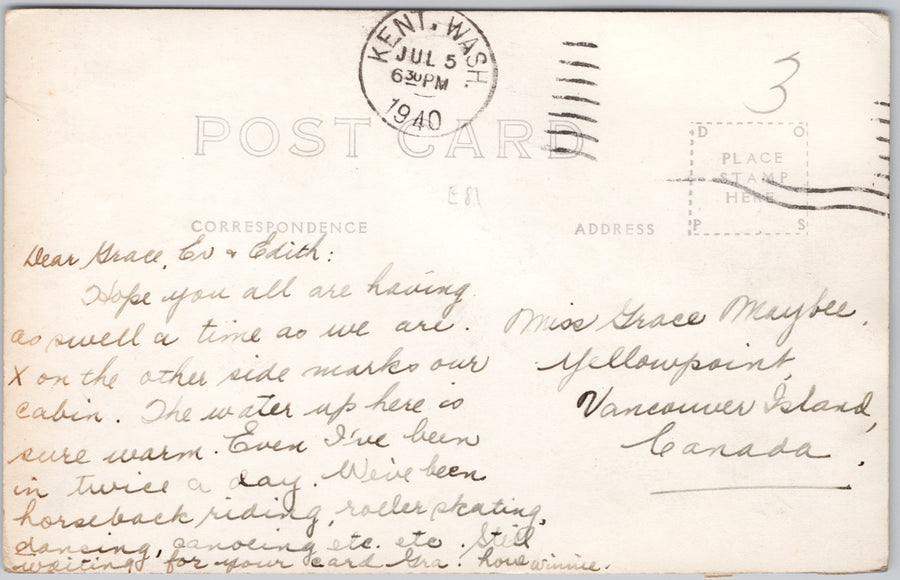 KENT, WASH.
JUL 5
6 30 PM
1940
3
POST CARD
D O
PLACE
STAMP
HERE
P S
E81
CORRESPONDENCE
ADDRESS
Dear Grace, Ev & Edith:
Hope you all are having
as swell a time as we are.
X on the other side marks our
cabin. The water up here is
sure warm. Even I've been
in twice a day. We've been
horseback riding, roller skating,
dancing, canoeing etc. etc. Still
waiting for your card Gra. Love Winnie.
Miss Grace Maybee,
Yellowpoint,
Vancouver Island,
Canada.